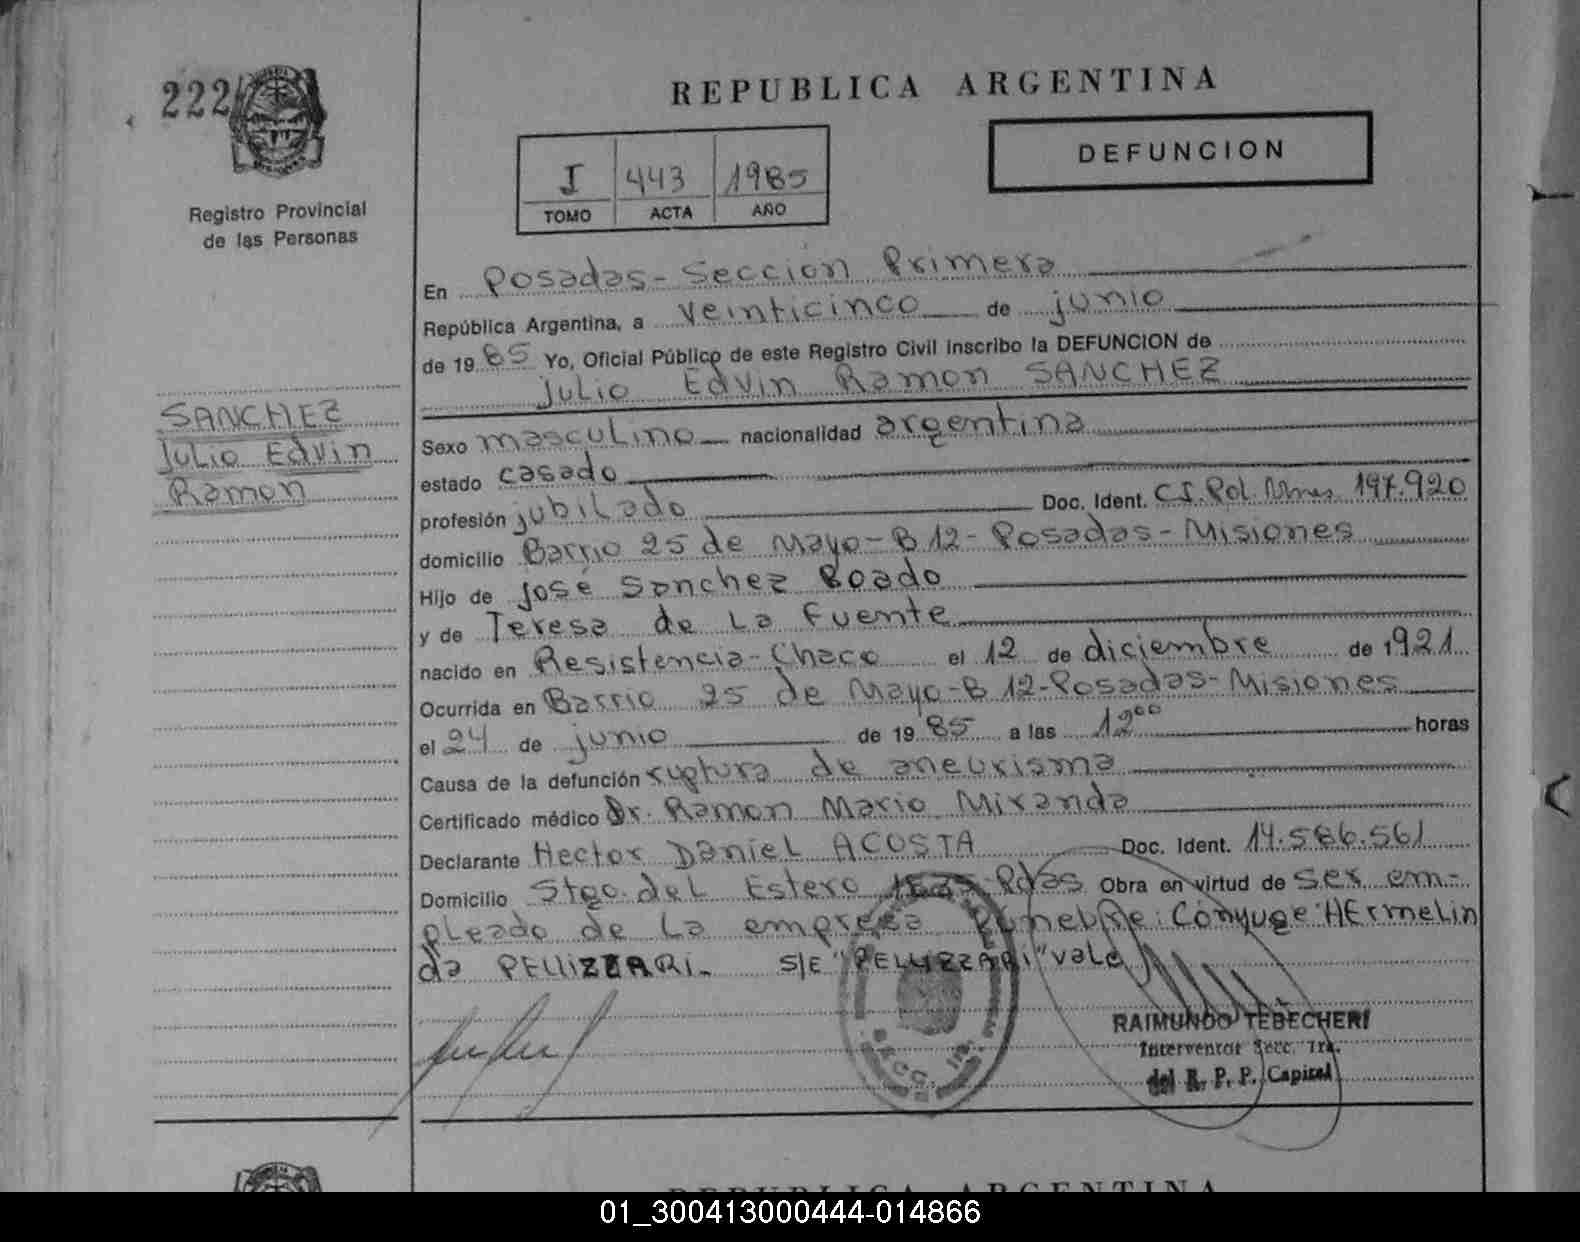 222
Registro Provincial
de las Personas
SANCHEZ
Julio Edvin
Ramon
REPUBLICA ARGENTINA
I 443 1985
TOMO ACTA AÑO
DEFUNCION
En Posadas-Seccion Primera
República Argentina, a veinticinco de junio
de 1985 Yo, Oficial Público de este Registro Civil inscribo la DEFUNCION de
Julio Edvin Ramon SANCHEZ
Sexo masculino nacionalidad argentina
estado casado
profesión jubilado Doc. Ident. C.I. Pol. Mnes 197.920
domicilio Barrio 25 de Mayo-B 12-Posadas-Misiones
Hijo de José Sanchez Boado
y de Teresa de La Fuente
nacido en Resistencia-Chaco el 12 de diciembre de 1921
Ocurrida en Barrio 25 de Mayo-B 12-Posadas-Misiones
el 24 de junio de 1985 a las 12⁰⁰ horas
Causa de la defunción ruptura de aneurisma
Certificado médico Dr. Ramon Mario Miranda
Declarante Hector Daniel ACOSTA Doc. Ident. 14.586.561
Domicilio Stgo. del Estero Pdas Obra en virtud de ser em-
pleado de la empresa funebre: Cónyuge: HErmelin
da PELLIZZARI. S/E "PELLIZZARI" vale
SECC. 1ra.
RAIMUNDO TEBECHERI
Interventor Secc. 1ra.
del R. P. P. Capital
REPUBLICA ARGENTINA
01_300413000444-014866